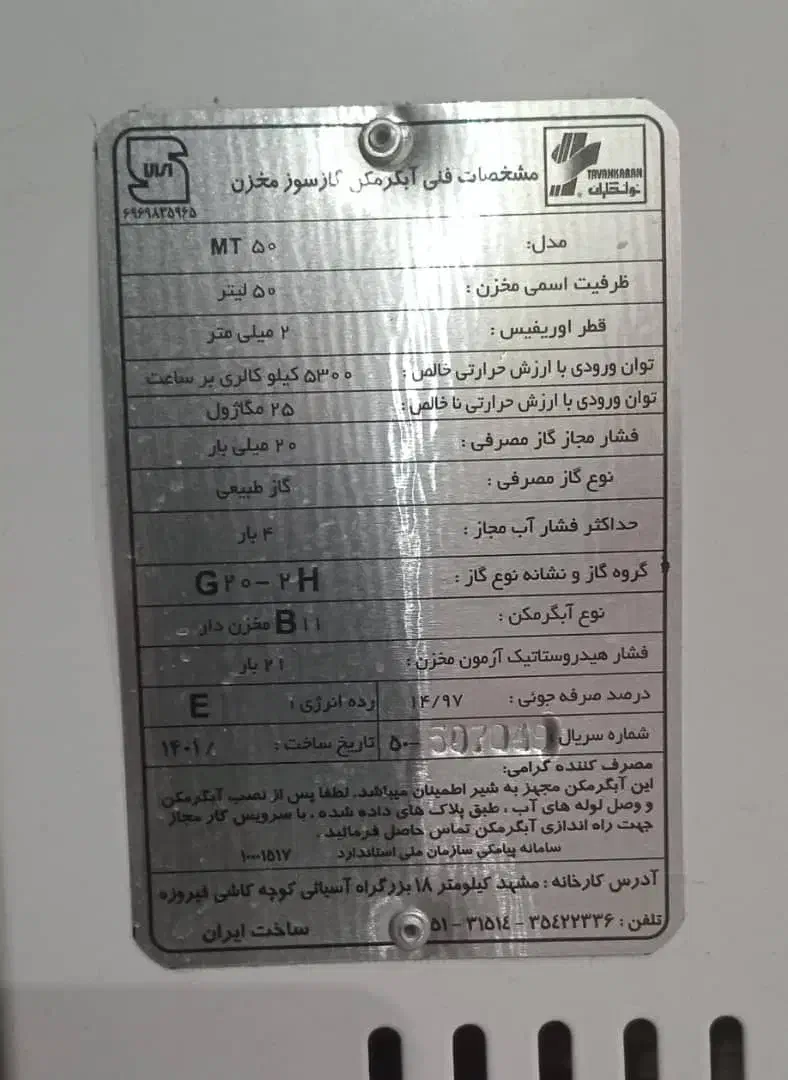 TAVANKARAN
توانکاران
مشخصات فنی آبگرمکن گازسوز مخزن
۶۹۶۹۸۳۵۹۶۵
مدل: MT ۵۰
ظرفیت اسمی مخزن : ۵۰ لیتر
قطر اوریفیس : ۲ میلی متر
توان ورودی با ارزش حرارتی خالص : ۵۳۰۰ کیلو کالری بر ساعت
توان ورودی با ارزش حرارتی نا خالص : ۲۵ مگاژول
فشار مجاز گاز مصرفی : ۲۰ میلی بار
نوع گاز مصرفی : گاز طبیعی
حداکثر فشار آب مجاز : ۴ بار
گروه گاز و نشانه نوع گاز : G۲۰-۲H
نوع آبگرمکن : B۱۱ مخزن دار
فشار هیدروستاتیک آزمون مخزن : ۲۱ بار
درصد صرفه جوئی : ۱۴/۹۷ رده انرژی : E
شماره سریال : ۵۰- تاریخ ساخت : ۱۴۰۱/
مصرف کننده گرامی:
این آبگرمکن مجهز به شیر اطمینان میباشد. لطفا پس از نصب آبگرمکن
و وصل لوله های آب ، طبق پلاک های داده شده ، با سرویس کار مجاز
جهت راه اندازی آبگرمکن تماس حاصل فرمائید .
سامانه پیامکی سازمان ملی استاندارد ۱۰۰۰۱۵۱۷
آدرس کارخانه : مشهد کیلومتر ۱۸ بزرگراه آسیائی کوچه کاشی فیروزه
تلفن : ۳۵۴۲۲۳۳۶ - ۳۱۵۱۴ - ۵۱ ساخت ایران